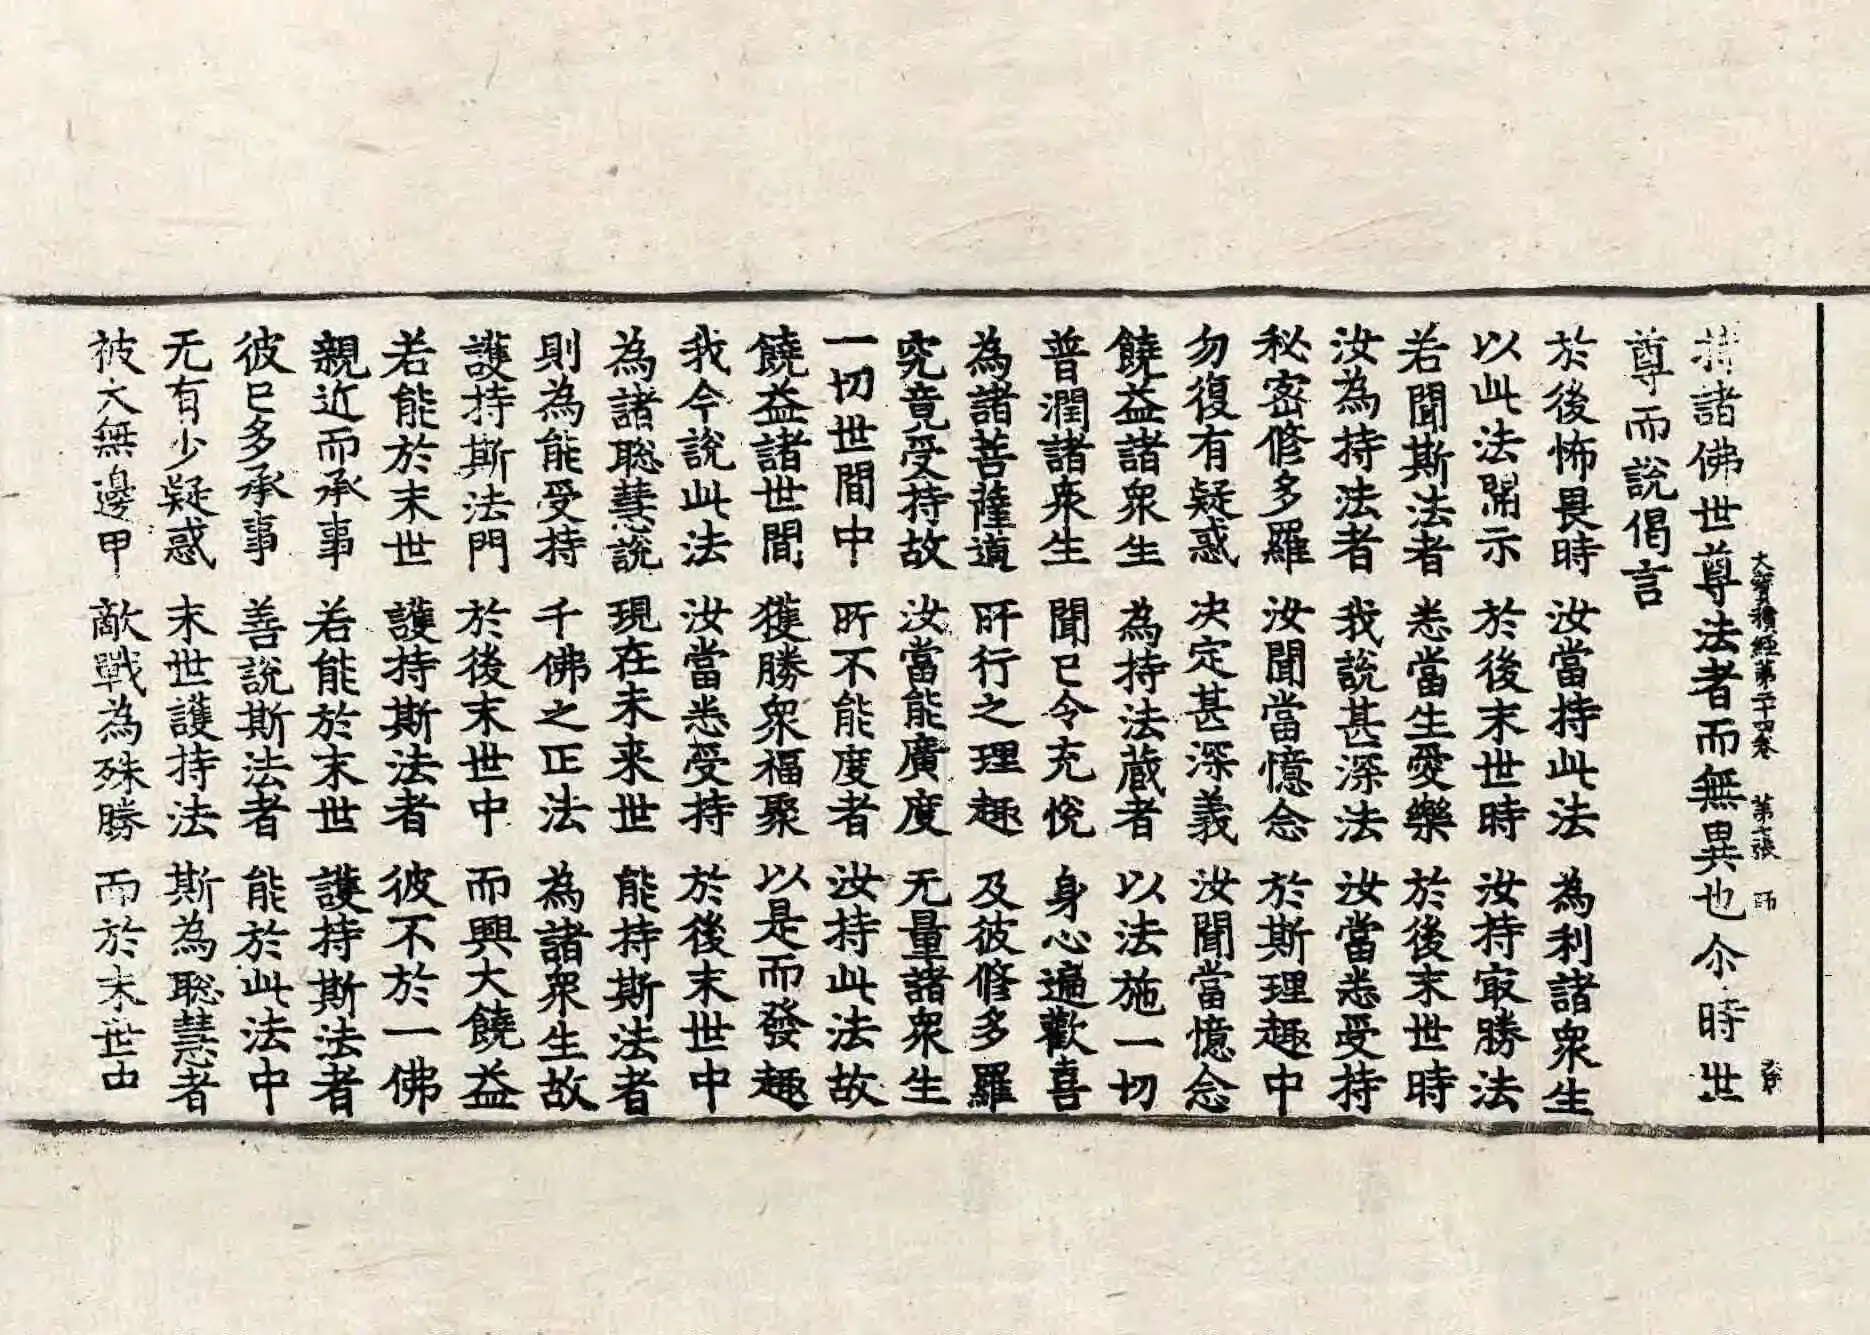 大寶積經第二十四卷 張 師
持諸佛世尊法者而無異也尒時世
尊而說偈言
於後怖畏時 汝當持此法 為利諸衆生
以此法開示 於後末世時 汝持㝡勝法
若聞斯法者 悉當生愛樂 於後末世時
汝為持法者 我說甚深法 汝當悉受持
秘密修多羅 汝聞當憶念 於斯理趣中
勿復有疑惑 决定甚深義 汝聞當憶念
饒益諸衆生 為持法蔵者 以法施一切
普潤諸衆生 聞已令充悅 身心遍歡喜
為諸菩薩道 所行之理趣 及彼修多羅
究竟受持故 汝當能廣度 无量諸衆生
一切世間中 所不能度者 汝持此法故
饒益諸世間 獲勝衆福聚 以是而發趣
我今說此法 汝當悉受持 於後末世中
為諸聡慧說 現在未来世 能持斯法者
則為能受持 千佛之正法 為諸衆生故
護持斯法門 於後末世中 而興大饒益
若能於末世 護持斯法者 彼不於一佛
親近而承事 若能於末世 護持斯法者
彼已多承事 善說斯法者 能於此法中
无有少疑惑 末世護持法 斯為聡慧者
被大無邊甲 敵戰為殊勝 而於末世中